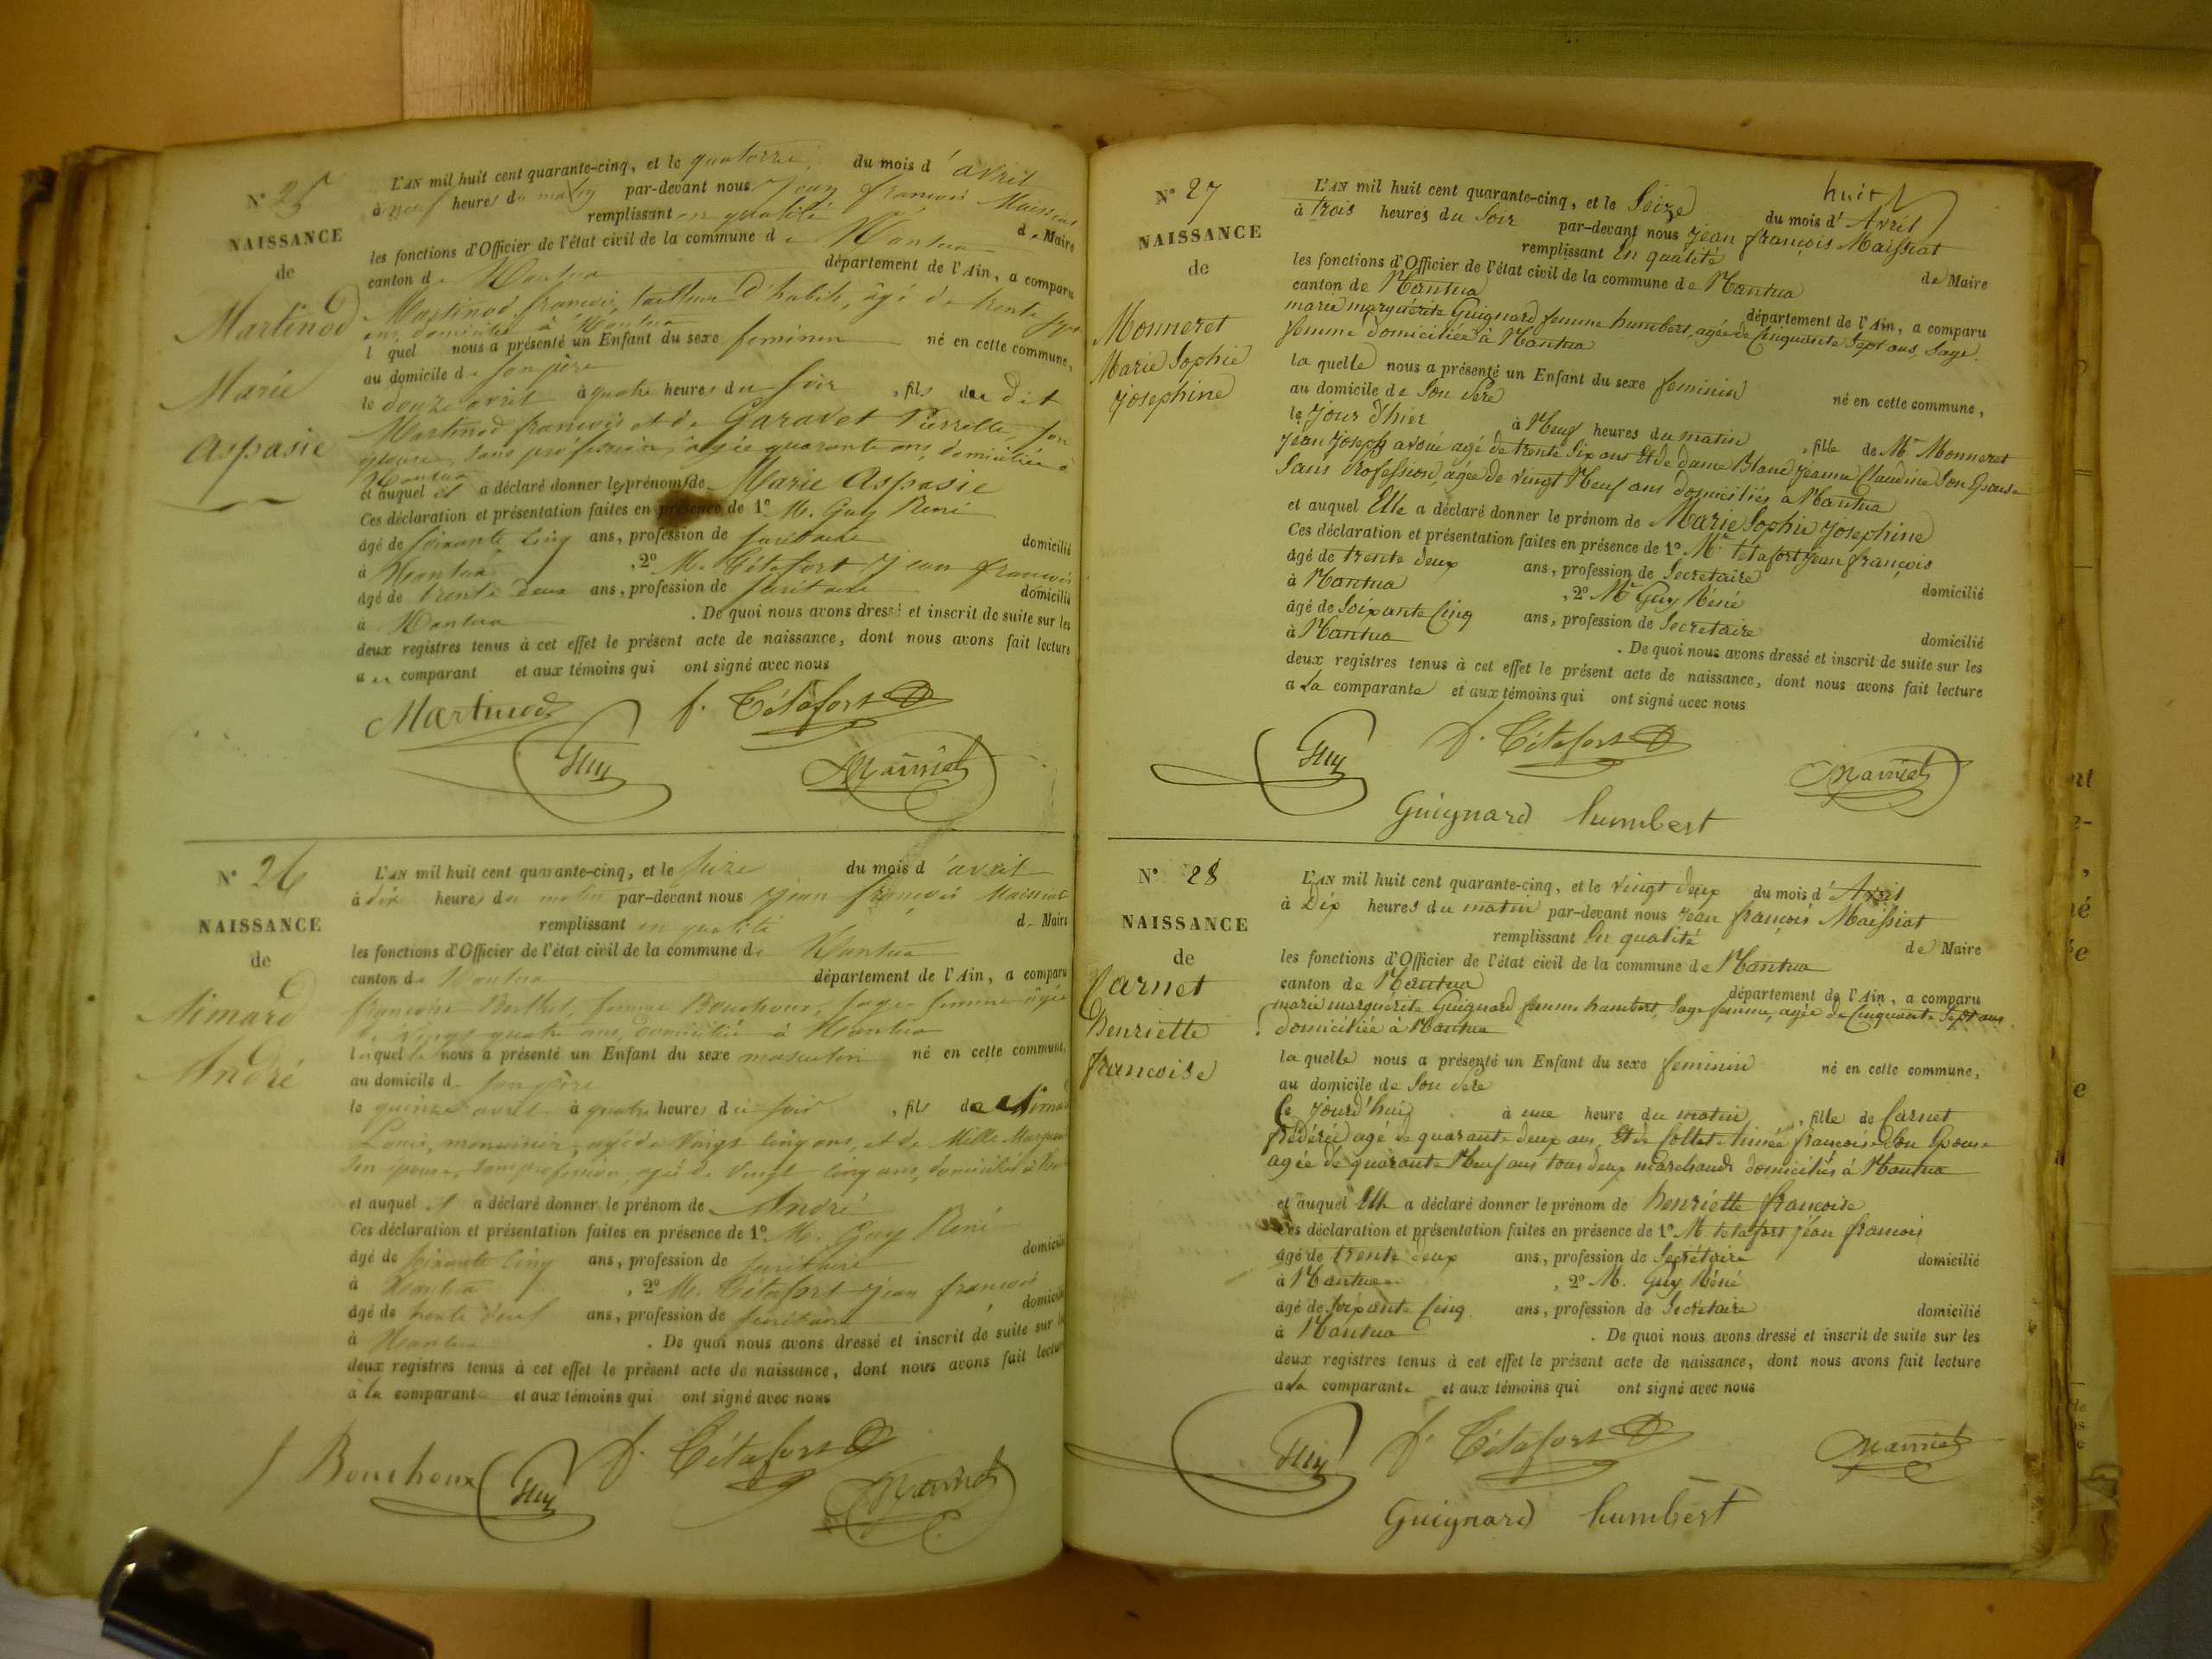 N° 25
NAISSANCE
de
Martinod
Marie
Aspasie
L'AN mil huit cent quarante-cinq, et le quatorze du mois d'avril
à neuf heures du matin par-devant nous Jean françois Maissiat
remplissant en qualité de Maire
les fonctions d'Officier de l'état civil de la commune de Nantua
canton de Nantua département de l'Ain, a comparu
Martinod françois, tailleur d'habits, âgé de trente sept
ans, domicilié à Nantua
lequel nous a présenté un Enfant du sexe feminin né en cette commune,
au domicile de son père
le douze avril à quatre heures du soir, fils de dit
Martinod françois et de Garavet Pierrette, son
épouse, sans profession, âgée quarante ans, domiciliée à
Nantua
et auquel il a déclaré donner les prénoms de Marie Aspasie
Ces déclaration et présentation faites en présence de 1° M. Guy René
âgé de soixante cinq ans, profession de secrétaire domicilié
à Nantua, 2° M. Tétafort Jean françois
âgé de trente deux ans, profession de secrétaire domicilié
à Nantua. De quoi nous avons dressé et inscrit de suite sur les
deux registres tenus à cet effet le présent acte de naissance, dont nous avons fait lecture
au comparant et aux témoins qui ont signé avec nous
Martinod f. Tétafort
Guy Maissiat
N° 26
NAISSANCE
de
Aimard
André
L'AN mil huit cent quarante-cinq, et le seize du mois d'avril
à dix heures du matin par-devant nous Jean françois Maissiat
remplissant en qualité de Maire
les fonctions d'Officier de l'état civil de la commune de Nantua
canton de Nantua département de l'Ain, a comparu
françoise Berthet, femme Bouchoux, sage femme âgée
de vingt quatre ans, domiciliée à Nantua
laquelle nous a présenté un Enfant du sexe masculin né en cette commune,
au domicile de son père
le quinze avril à quatre heures du soir, fils de Aimard
Louis, menuisier, âgé de vingt cinq ans, et de Mille
son épouse, sans profession, âgée de vingt cinq ans, domiciliés à
et auquel il a déclaré donner le prénom de André
Ces déclaration et présentation faites en présence de 1° M. Guy René
âgé de soixante cinq ans, profession de secrétaire domicilié
à Nantua, 2° M. Tétafort Jean françois
âgé de trente deux ans, profession de secrétaire domicilié
à Nantua. De quoi nous avons dressé et inscrit de suite sur les
deux registres tenus à cet effet le présent acte de naissance, dont nous avons fait lecture
à la comparante et aux témoins qui ont signé avec nous
f Bouchoux Guy f. Tétafort Maissiat
huit
N° 27
NAISSANCE
de
Monneret
Marie Sophie
Josephine
L'AN mil huit cent quarante-cinq, et le Seize du mois d'Avril
à trois heures du Soir par-devant nous Jean françois Maissiat
remplissant En qualité de Maire
les fonctions d'Officier de l'état civil de la commune de Nantua
canton de Nantua département de l'Ain, a comparu
marie marguérite Guignard femme humbert, agée de Cinquante Sept ans, Sage
femme domiciliée à Nantua
la quelle nous a présenté un Enfant du sexe feminin né en cette commune,
au domicile de Son Père
le jour d'hier à Neuf heures du matin, fille de Mr Monneret
Jean Joseph avoué agé de trente Six ans Et de dame Blanc Jeanne Claudine Son Epouse
Sans Profession, agée de vingt Neuf ans domiciliés à Nantua
et auquel Elle a déclaré donner le prénom de Marie Sophie Josephine
Ces déclaration et présentation faites en présence de 1° Mr tetafort Jean françois
âgé de trente deux ans, profession de Secretaire domicilié
à Nantua, 2° Mr Guy Réné
âgé de Soixante Cinq ans, profession de Secretaire domicilié
à Nantua. De quoi nous avons dressé et inscrit de suite sur les
deux registres tenus à cet effet le présent acte de naissance, dont nous avons fait lecture
a La comparante et aux témoins qui ont signé avec nous
Guy f. Tétafort Maissiat
Guignard humbert
N° 28
NAISSANCE
de
Carnet
Henriette
francoise
L'AN mil huit cent quarante-cinq, et le vingt deux du mois d'Avril
à Dix heures du matin par-devant nous Jean françois Maissiat
remplissant En qualité de Maire
les fonctions d'Officier de l'état civil de la commune de Nantua
canton de Nantua département de l'Ain, a comparu
marie marguérite Guignard femme humbert, Sage femme, agée de Cinquante Sept ans
domiciliée à Nantua
la quelle nous a présenté un Enfant du sexe feminin né en cette commune,
au domicile de Son Père
Ce jourd'hui à une heure du matin, fille de Carnet
frédéric agé de quarante deux ans Et de Aimée françoise Son Epouse
agée de quarante Neuf ans tous deux marchands domiciliés à Nantua
et auquel Elle a déclaré donner le prénom de henriette francoise
Ces déclaration et présentation faites en présence de 1° M. tetafort jean francois
âgé de trente deux ans, profession de Secrétaire domicilié
à Nantua, 2° M. Guy Réné
âgé de Soixante Cinq ans, profession de Secretaire domicilié
à Nantua. De quoi nous avons dressé et inscrit de suite sur les
deux registres tenus à cet effet le présent acte de naissance, dont nous avons fait lecture
a La comparante et aux témoins qui ont signé avec nous
Guy f. Tétafort Maissiat
Guignard humbert